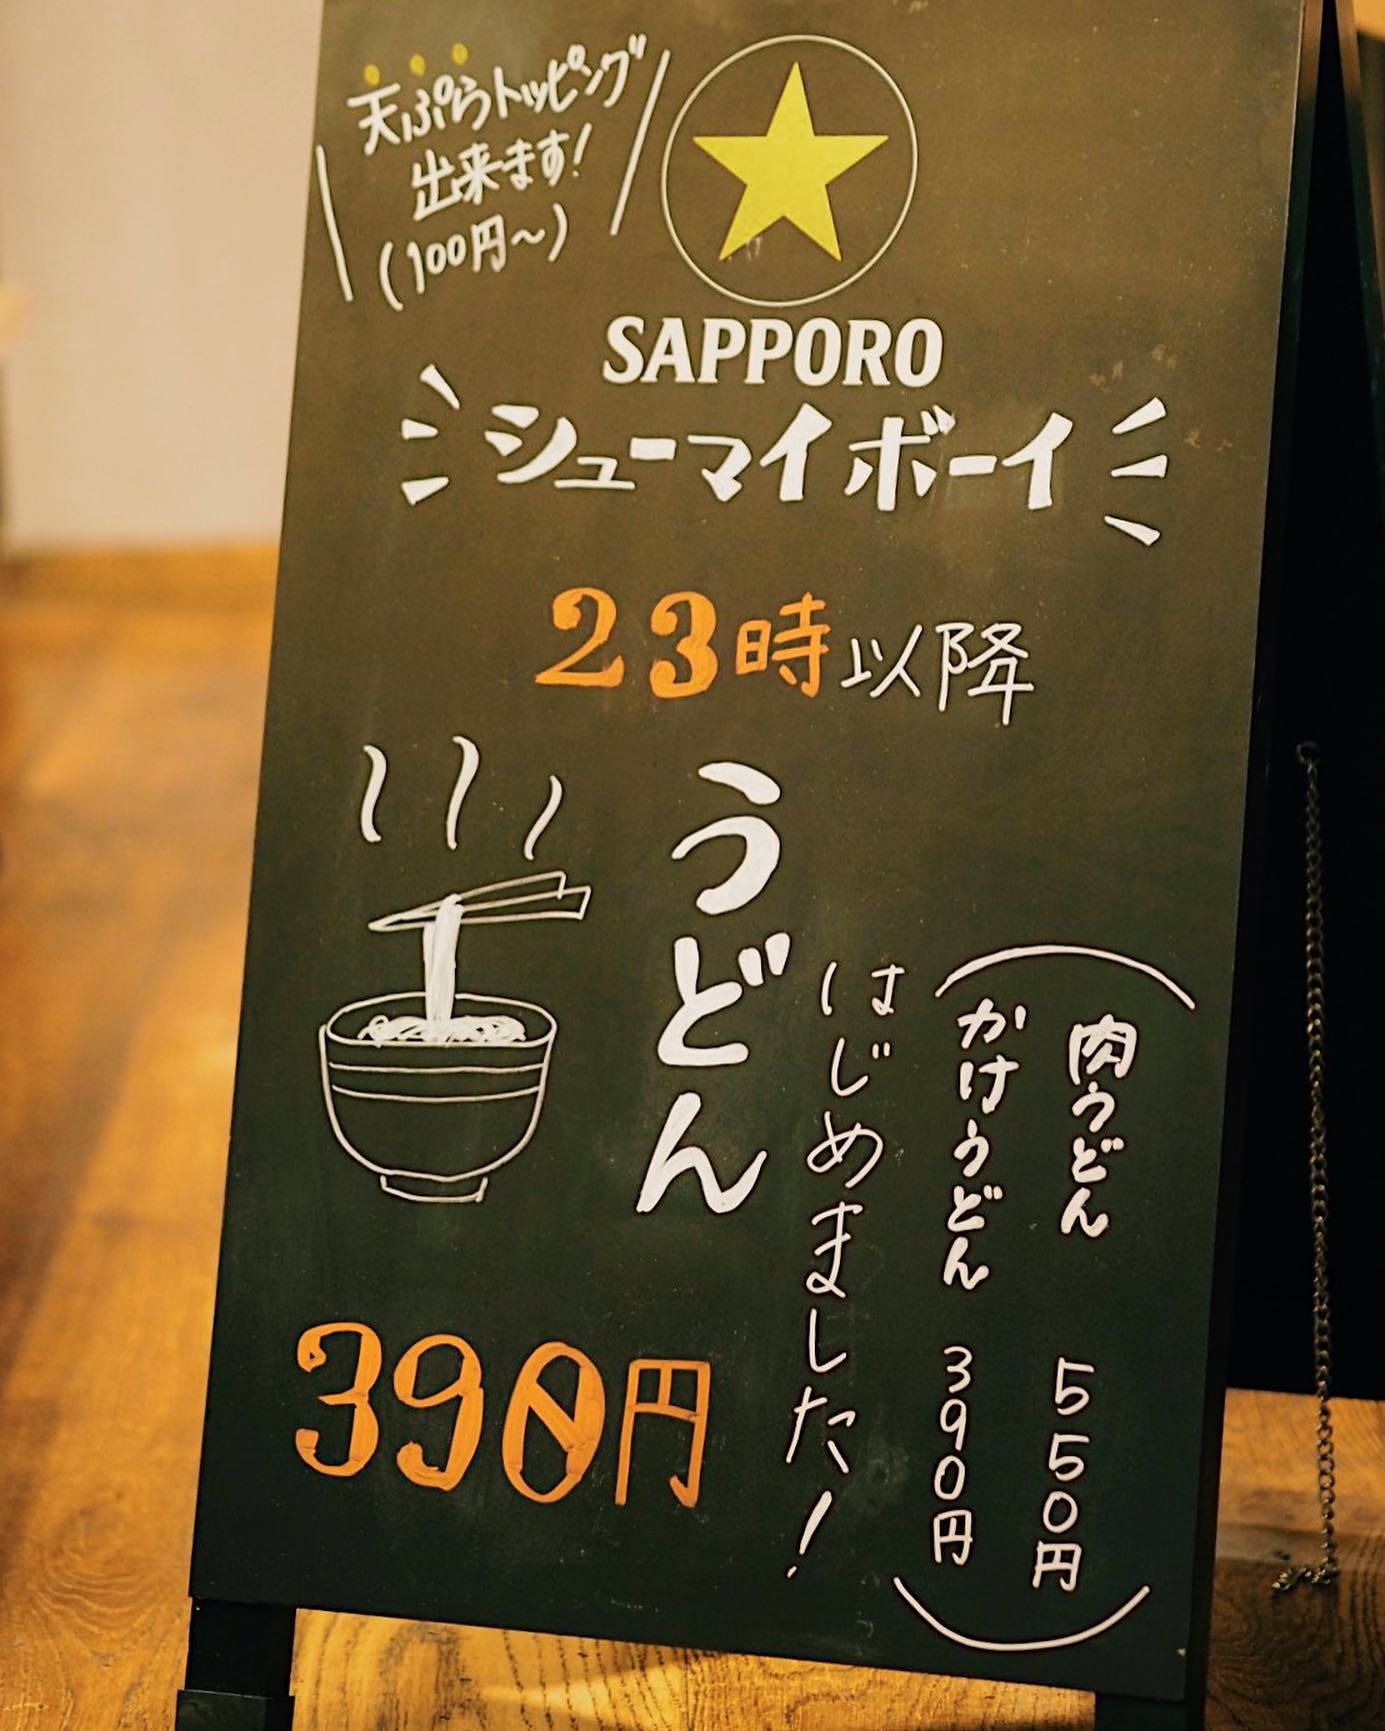 天ぷらトッピング
出来ます!
(100円〜)
SAPPORO
シューマイボーイ
23時以降
うどん
はじめました!
390円
肉うどん 550円
かけうどん 390円